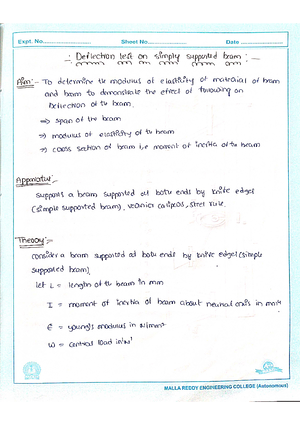 Expt. No. Sheet No. Date
-: Deflection test on simply supported beam :-
Aim:- To determine the modulus of elasticity of material of beam
and beam to demonstrate the effect of following on
Deflection of the beam.
⇒ span of the beam
⇒ modulus of elasticity of the beam
⇒ cross section of beam i.e moment of inertia of the beam
Apparatus:-
supports a beam supported at both ends by knife edges
(simple supported beam), vernier calipers, steel rule.
Theory:-
consider a beam supported at both ends by knife edges (simple
supported beam)
let L = length of the beam in mm
I = moment of inertia of beam about neutral axis in mm4
E = young's modulus in N/mm2
W = central load in 'N'
MALLA REDDY ENGINEERING COLLEGE (Autonomous)